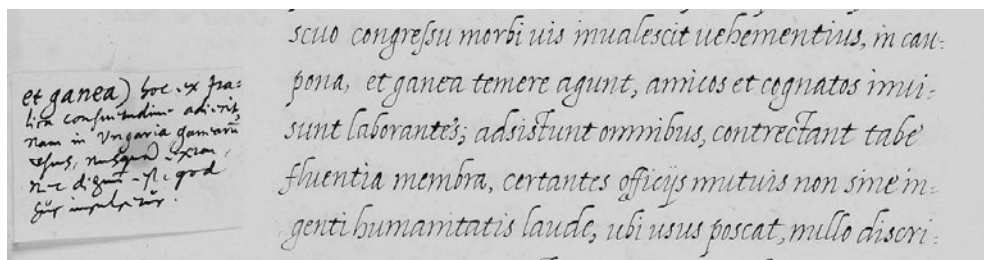 et ganea) hoc ex Ita-
lica consuetudine adiecit
nam in Vngaria ganearū
usus, nusquā
scuo congreſsu morbi uis inualescit uehementius, in cau-
pona, et ganea temere agunt, amicos et cognatos inui-
sunt laborantes; adsistunt omnibus, contrectant tabe
fluentia membra, certantes officijs mutuis non sine in-
genti humanitatis laude, ubi usus poscat, nullo discri-